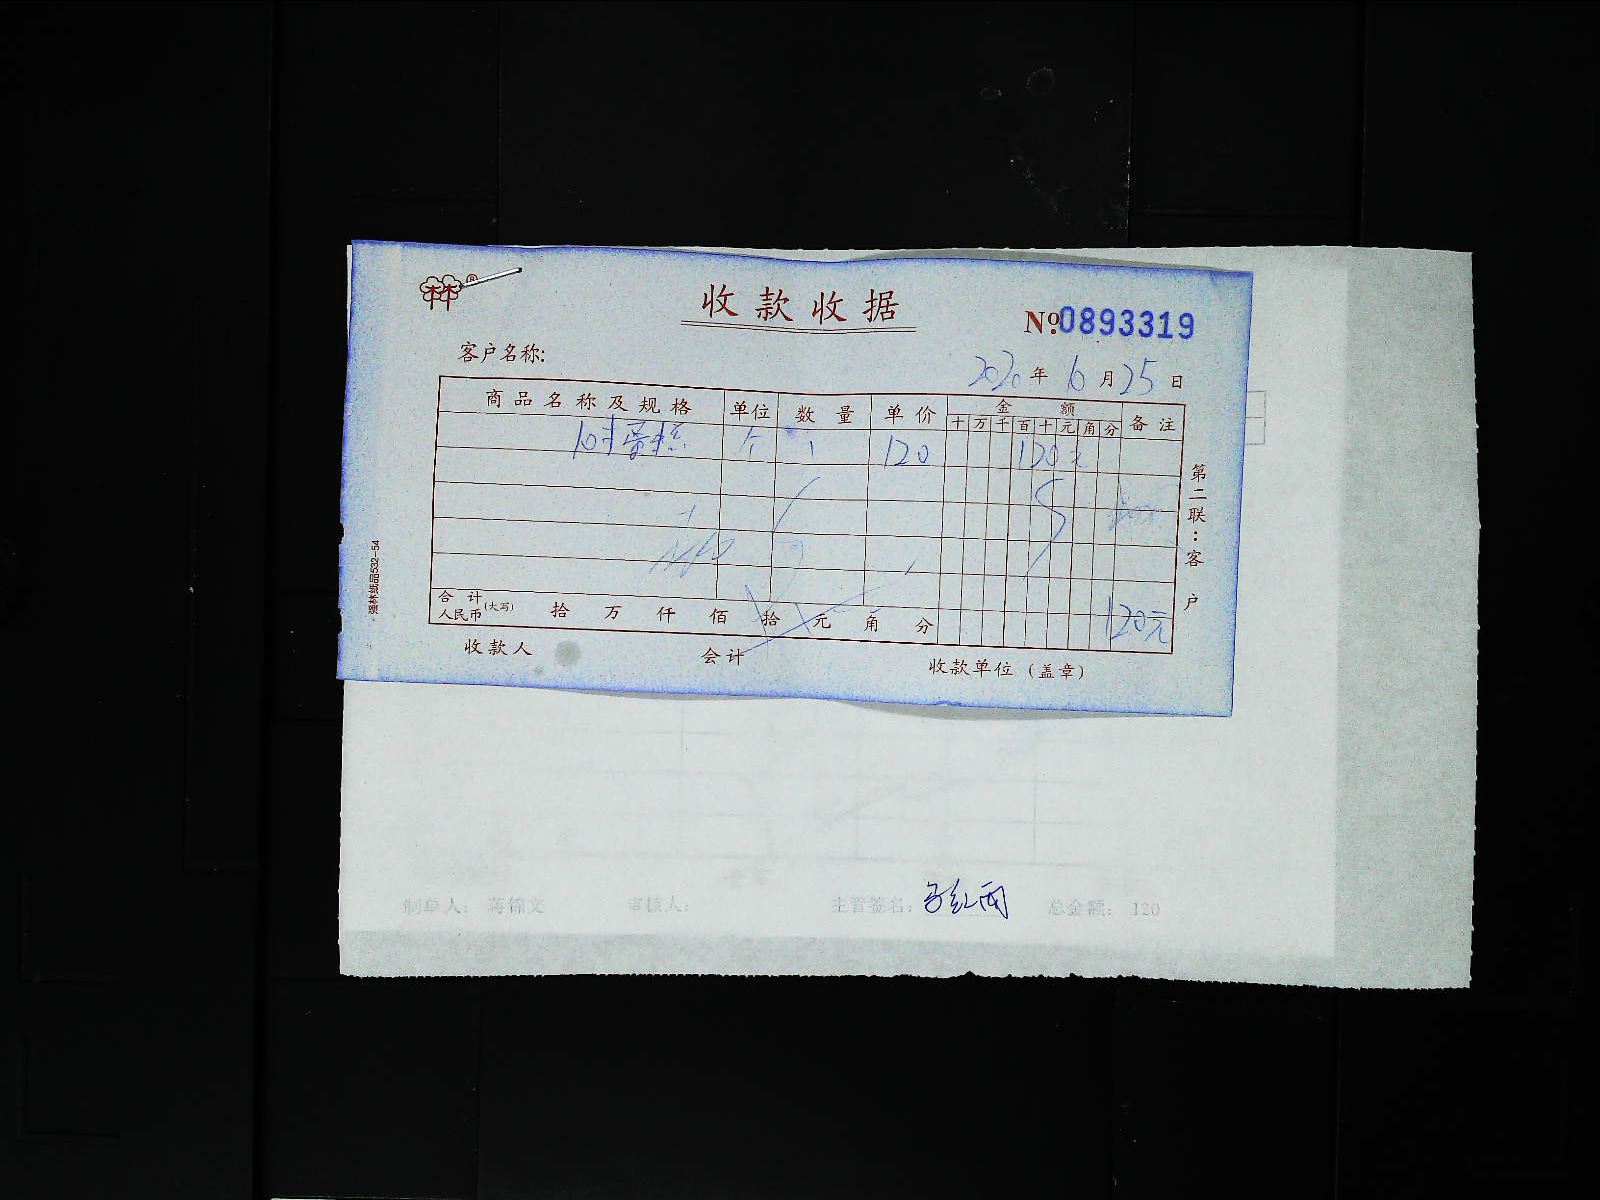 收款收据
№0893319
客户名称:
2020年6月25日
商品名称及规格 单位 数量 单价 金额 备注
十万千百十元角分
10寸蛋糕 个 1 120 120元
合计
人民币(大写) 拾 万 仟 佰 拾 元 角 分 120元
收款人 会计 收款单位(盖章)
第二联:客户
强林纸品532-54
制单人: 蒋锦文 审核人: 主管签名: 总金额: 120